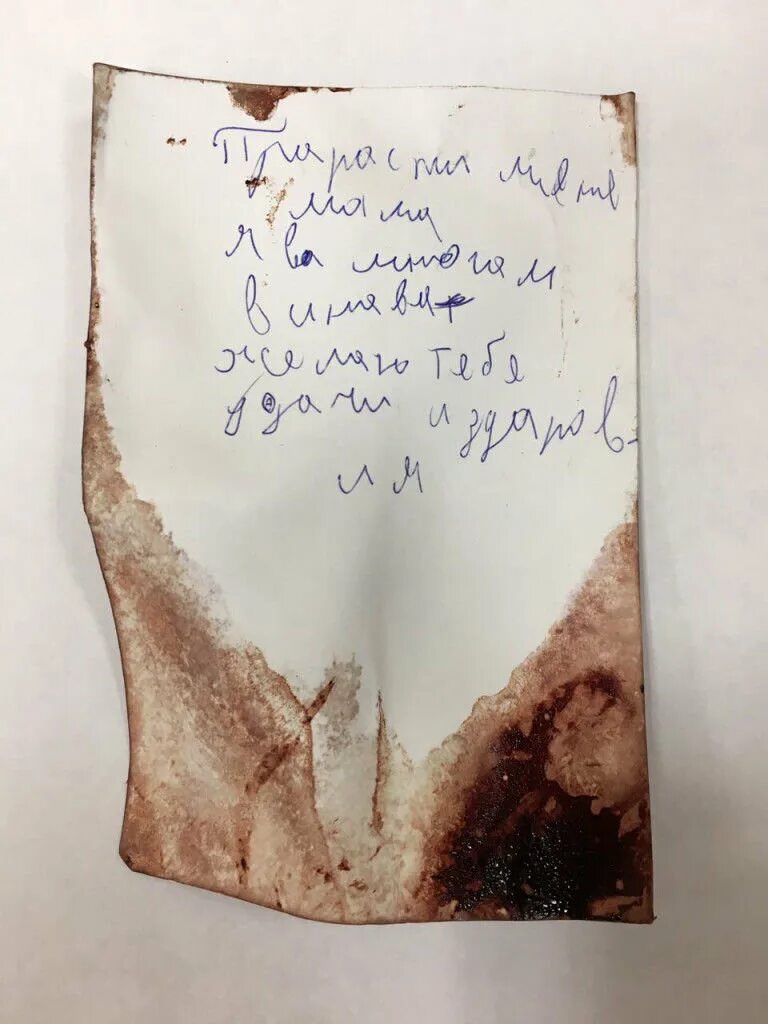 Прарасти миня
мама
я ва многам
винават
желаю тебе
удачи и здаровь-
ия